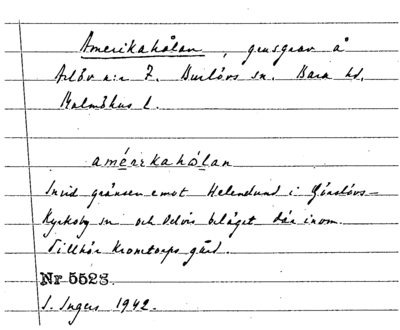 Amerikahålan, grusgrav å
Arlöv n:r 7. Burlövs sn. Bara hd.
Malmöhus l.
amérikahólan
Invid gränsen emot Helenelund i Görslövs-
Kyrkoby sn och delvis beläget där inom.
Tillhör Kronetorps gård.
Nr 5528.
I. Ingers 1942.